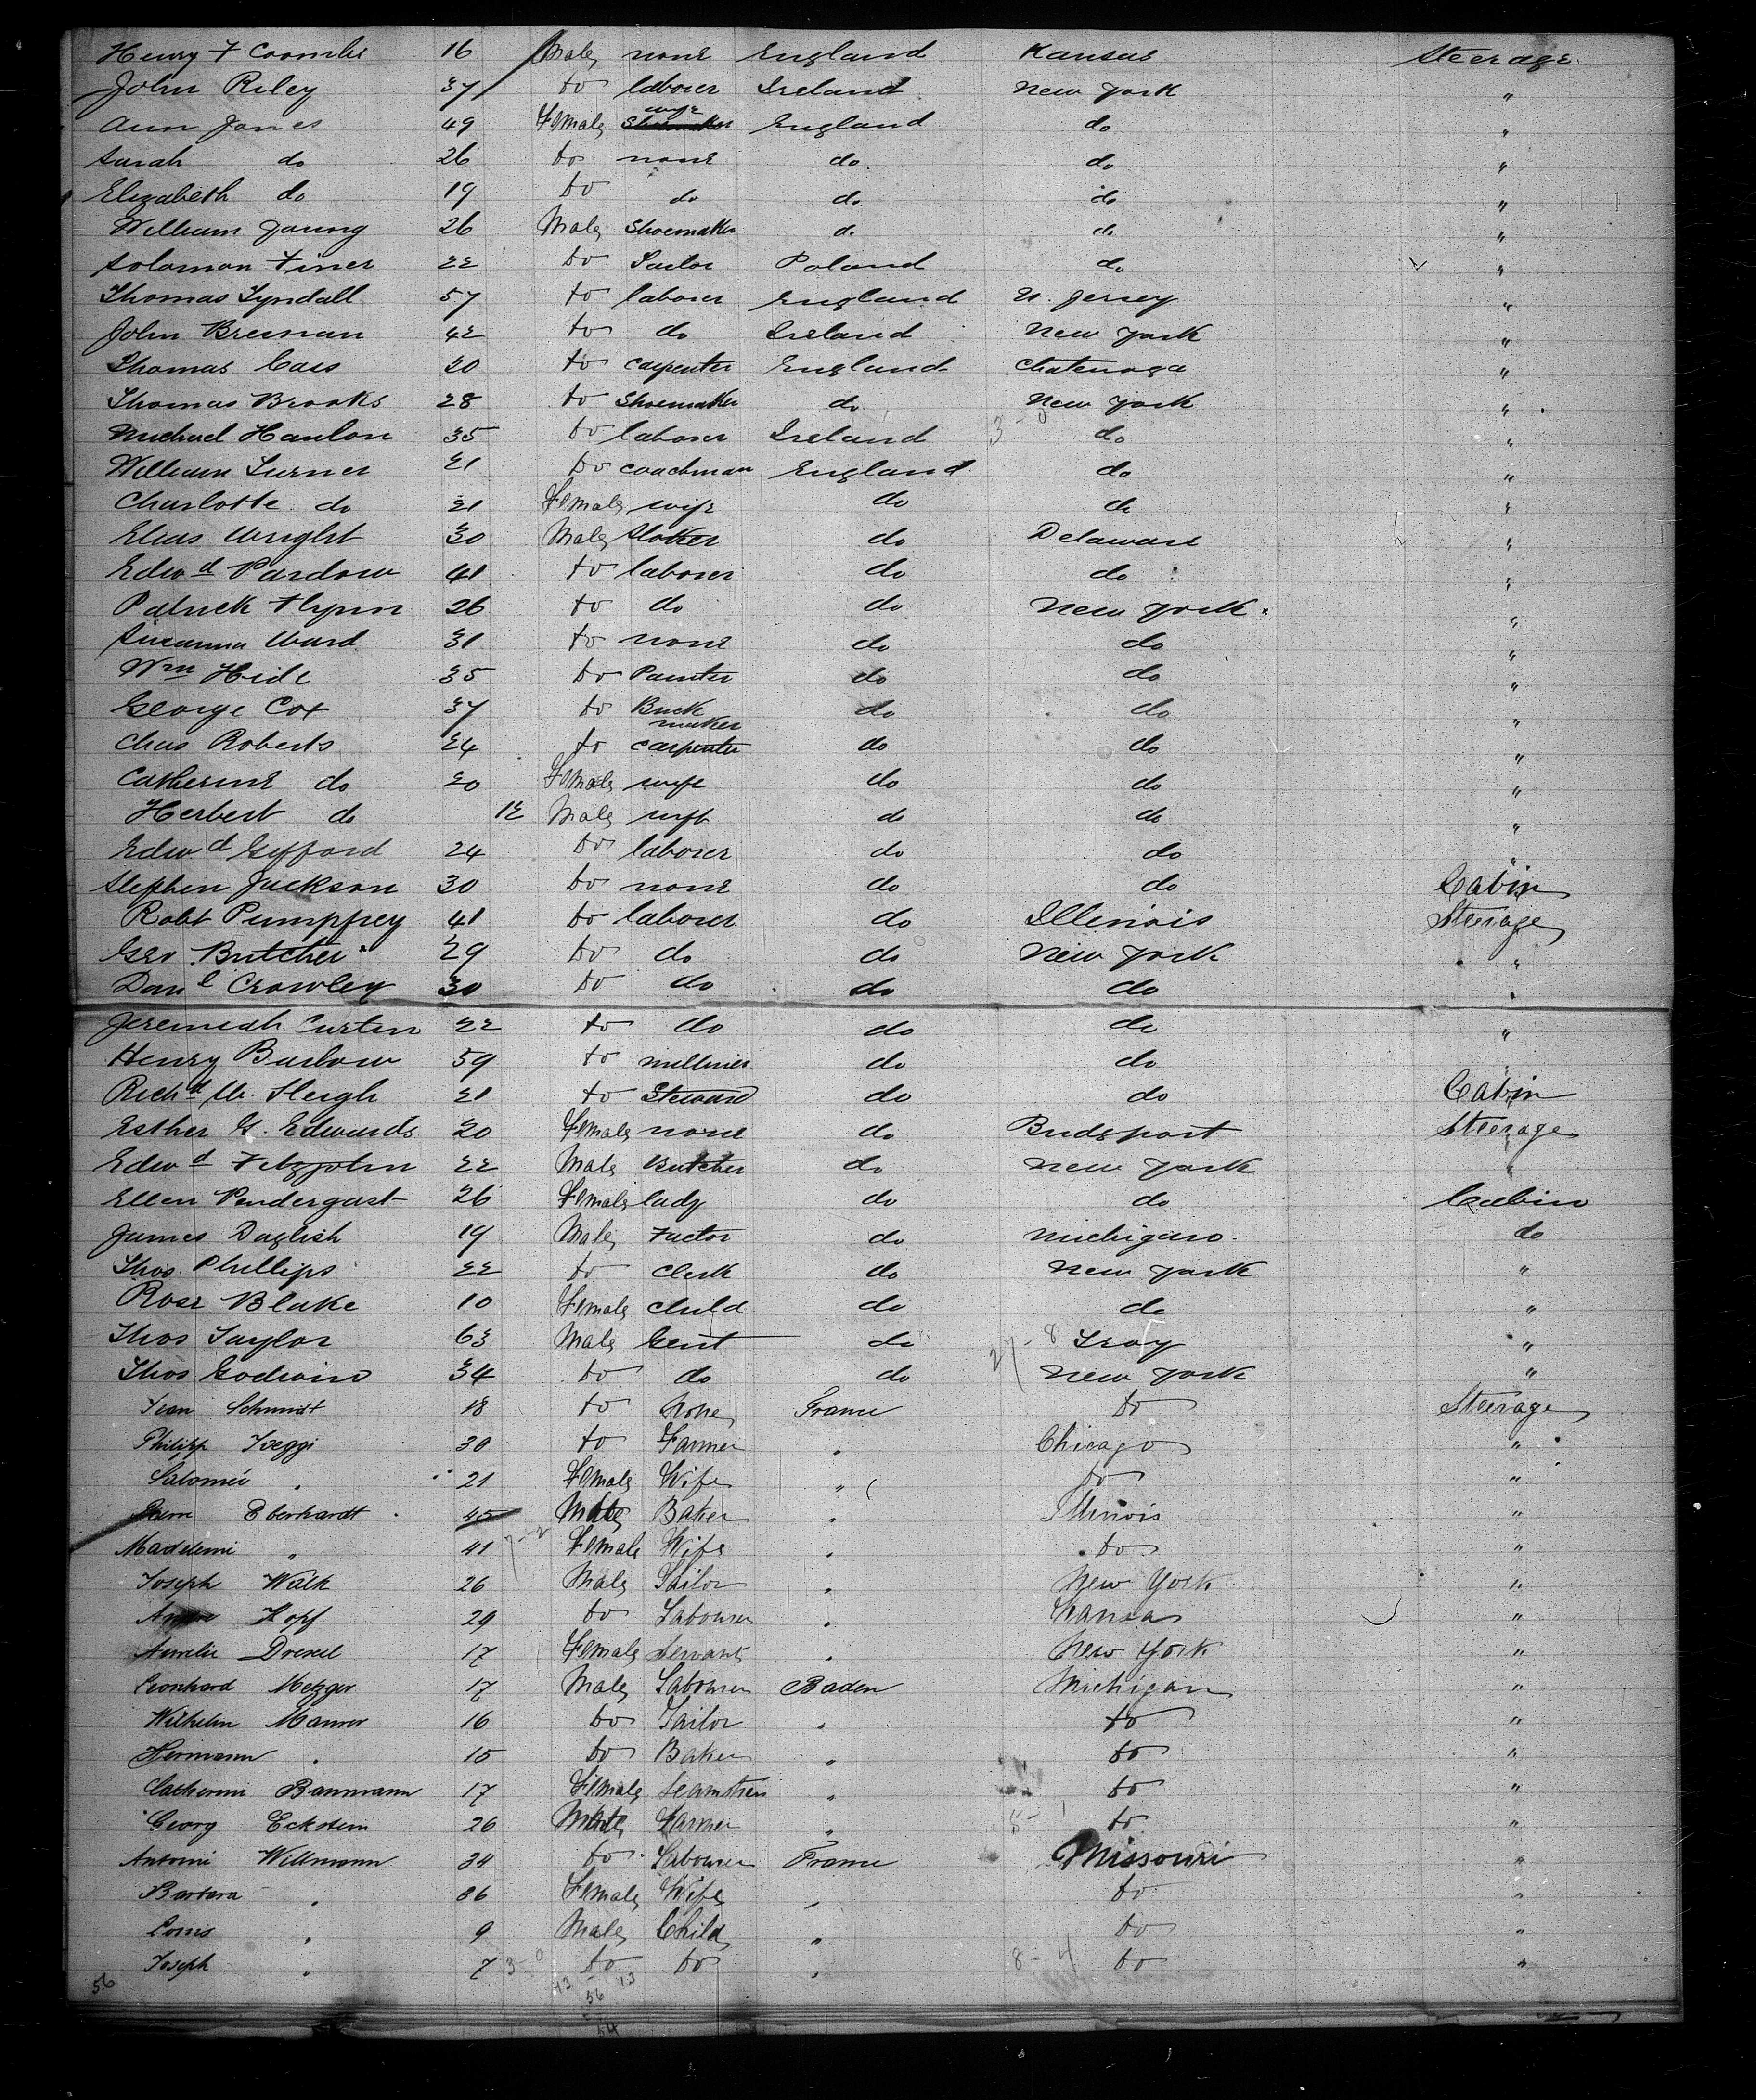 Henry F Coombs 16 Male none England Kansas Steerage
John Riley 37 do laborer Ireland New York "
Ann Jones 49 Female wife England do "
Sarah do 26 do none do do "
Elizabeth do 19 do do do do "
William Young 26 Male Shoemaker do do "
Solomon Finer 22 do Tailor Poland do "
Thomas Tyndall 57 do laborer England N. Jersey "
John Bresnan 42 do do Ireland New York "
Thomas Cass 20 do carpenter England Chatenoga "
Thomas Brooks 28 do Shoemaker do New York "
Michael Hanlon 35 do laborer Ireland 3-0 do "
William Turner 21 do coachman England do "
Charlotte do 21 Female wife do do "
Elias Wright 30 Male Stoker do Delaware "
Edwd Pardow 41 do laborer do do "
Patrick Flynn 26 do do do New York "
Susanna Ward 31 do none do do "
Wm Hide 35 do Painter do do "
George Cox 37 do Brick maker do do "
Chas Roberts 24 do carpenter do do "
Catherine do 20 Female wife do do "
Herbert do 12 Male do do "
Edwd Gyfford 24 do laborer do do "
Stephen Jackson 30 do none do do Cabin
Robt Pumpfrey 41 do laborer do Illinois Steerage
Geo Butcher 29 do do do New York "
Danl Crowley 30 do do do do "
Jeremiah Curten 22 do do do do "
Henry Barlow 59 do do do "
Richd W. Sleigh 21 do Steward do do Cabin
Esther G. Edwards 20 Female none do Bridsport Steerage
Edwd Fitzjohn 22 Male Butcher do New York "
Ellen Pendergast 26 Female lady do do Cabin
James Daglish 19 Male Factor do Michigan do
Thos. Phillips 22 do Clerk do New York "
Rose Blake 10 Female child do do "
Thos Taylor 63 Male Gent do Troy "
Thos Godwin 34 do do do New York "
Schmidt 18 do None France do Steerage
Philipp 30 do Farmer " Chicago "
Salomée " 21 Female Wife " do "
Eberhardt 45 Male Baker " Illinois "
Madeleine " 41 Female Wife " do "
Joseph Walk 26 Male Tailor " New York "
Kopf 29 do Labourer " Kansas "
Aurelie Drexel 17 Female Servant " New York "
Leonhard Metzger 17 Male Labourer Baden Michigan "
Wilhelm Maurer 16 do Tailor " do "
Hermann " 15 do Baker " do "
Catherine Baumann 17 Female Seamstress " do "
Georg Eckstein 26 Male Farmer " do "
Antoine Willmann 34 do Labourer France Missouri "
Barbara " 36 Female Wife " do "
Louis " 9 Male Child " do "
Joseph " 7 3-0 do do " 8-4 do "
56 43 13
56
54